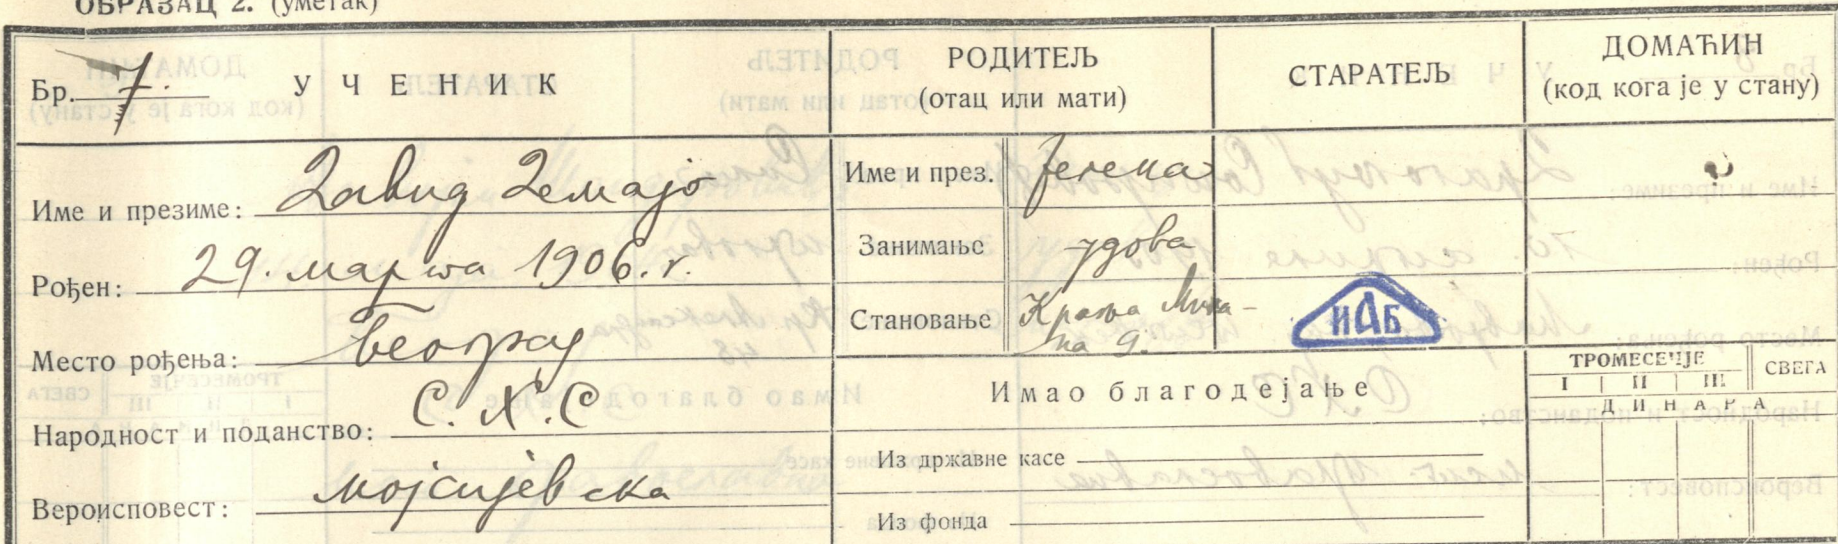 ОБРАЗАЦ 2. (уметак)
Бр. 7. УЧЕНИК
РОДИТЕЉ
(отац или мати)
СТАРАТЕЉ
ДОМАЋИН
(код кога је у стану)
Име и презиме: Давид Демајо
Рођен: 29. марта 1906. г.
Место рођења: Београд
Народност и поданство: С.Х.С
Вероисповест: мојсијевска
Име и през. Јелена
Занимање удова
Становање Краља Мила-
на 9.
ИАБ
Имао благодејање
Из државне касе
Из фонда
ТРОМЕСЕЧЈЕ СВЕГА
I II III
ДИНАРА